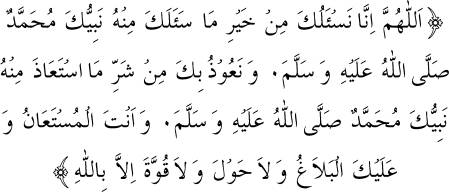 ﴿ اَللّٰهُمَّ اِنَّا نَسْئَلُكَ مِنْ خَيْرِ مَا سَئَلَكَ مِنْهُ نَبِيُّكَ مُحَمَّدٌ
صَلَّى اللهُ عَلَيْهِ وَ سَلَّمَ. وَ نَعُوْذُ بِكَ مِنْ شَرِّ مَا اسْتَعَاذَ مِنْهُ
نَبِيُّكَ مُحَمَّدٌ صَلَّى اللهُ عَلَيْهِ وَ سَلَّمَ. وَ اَنْتَ الْمُسْتَعَانُ وَ
عَلَيْكَ الْبَلَاغُ وَ لَا حَوْلَ وَ لَا قُوَّةَ اِلَّا بِاللهِ ﴾